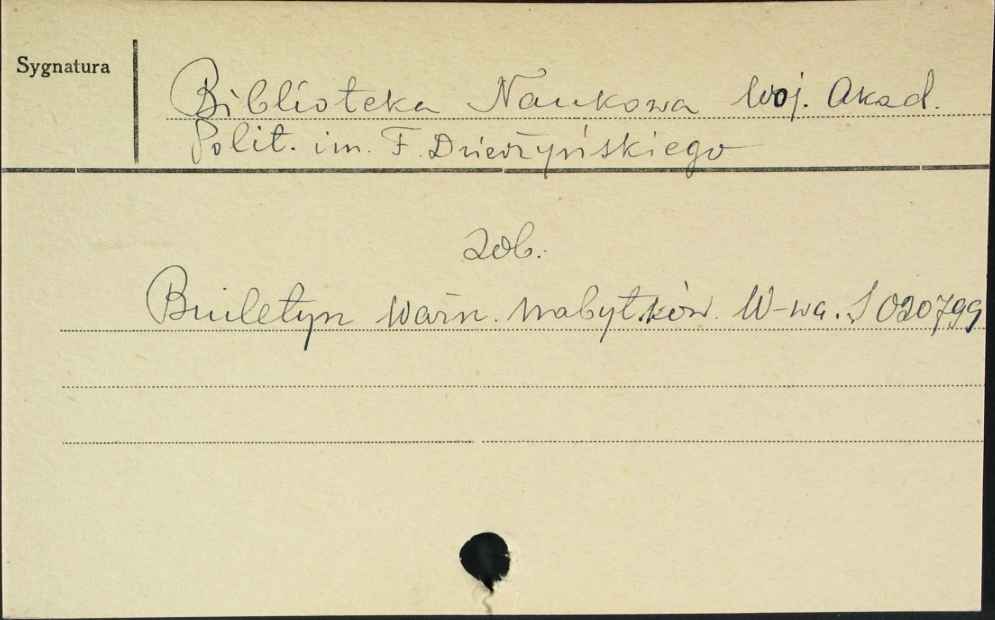 Sygnatura
Biblioteka Naukowa Woj. Akad.
Polit. im. F. Dzierżyńskiego
zob.
Biuletyn ważn. nabytków. W-wa. S 020799